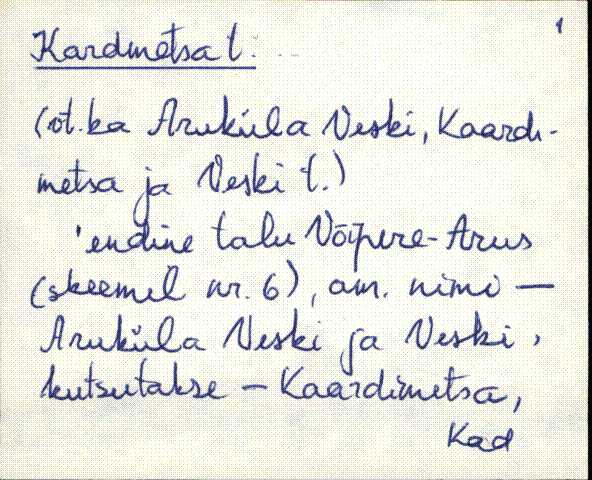 1
Kardmetsa t.
(vt. ka Aruküla Veski, Kaardi-
metsa ja Veski t.)
'endine talu Võipere-Arus
(skeemel nr. 6), am. nimi —
Aruküla Veski ja Veski,
kutsutakse – Kaardimetsa,
Kad